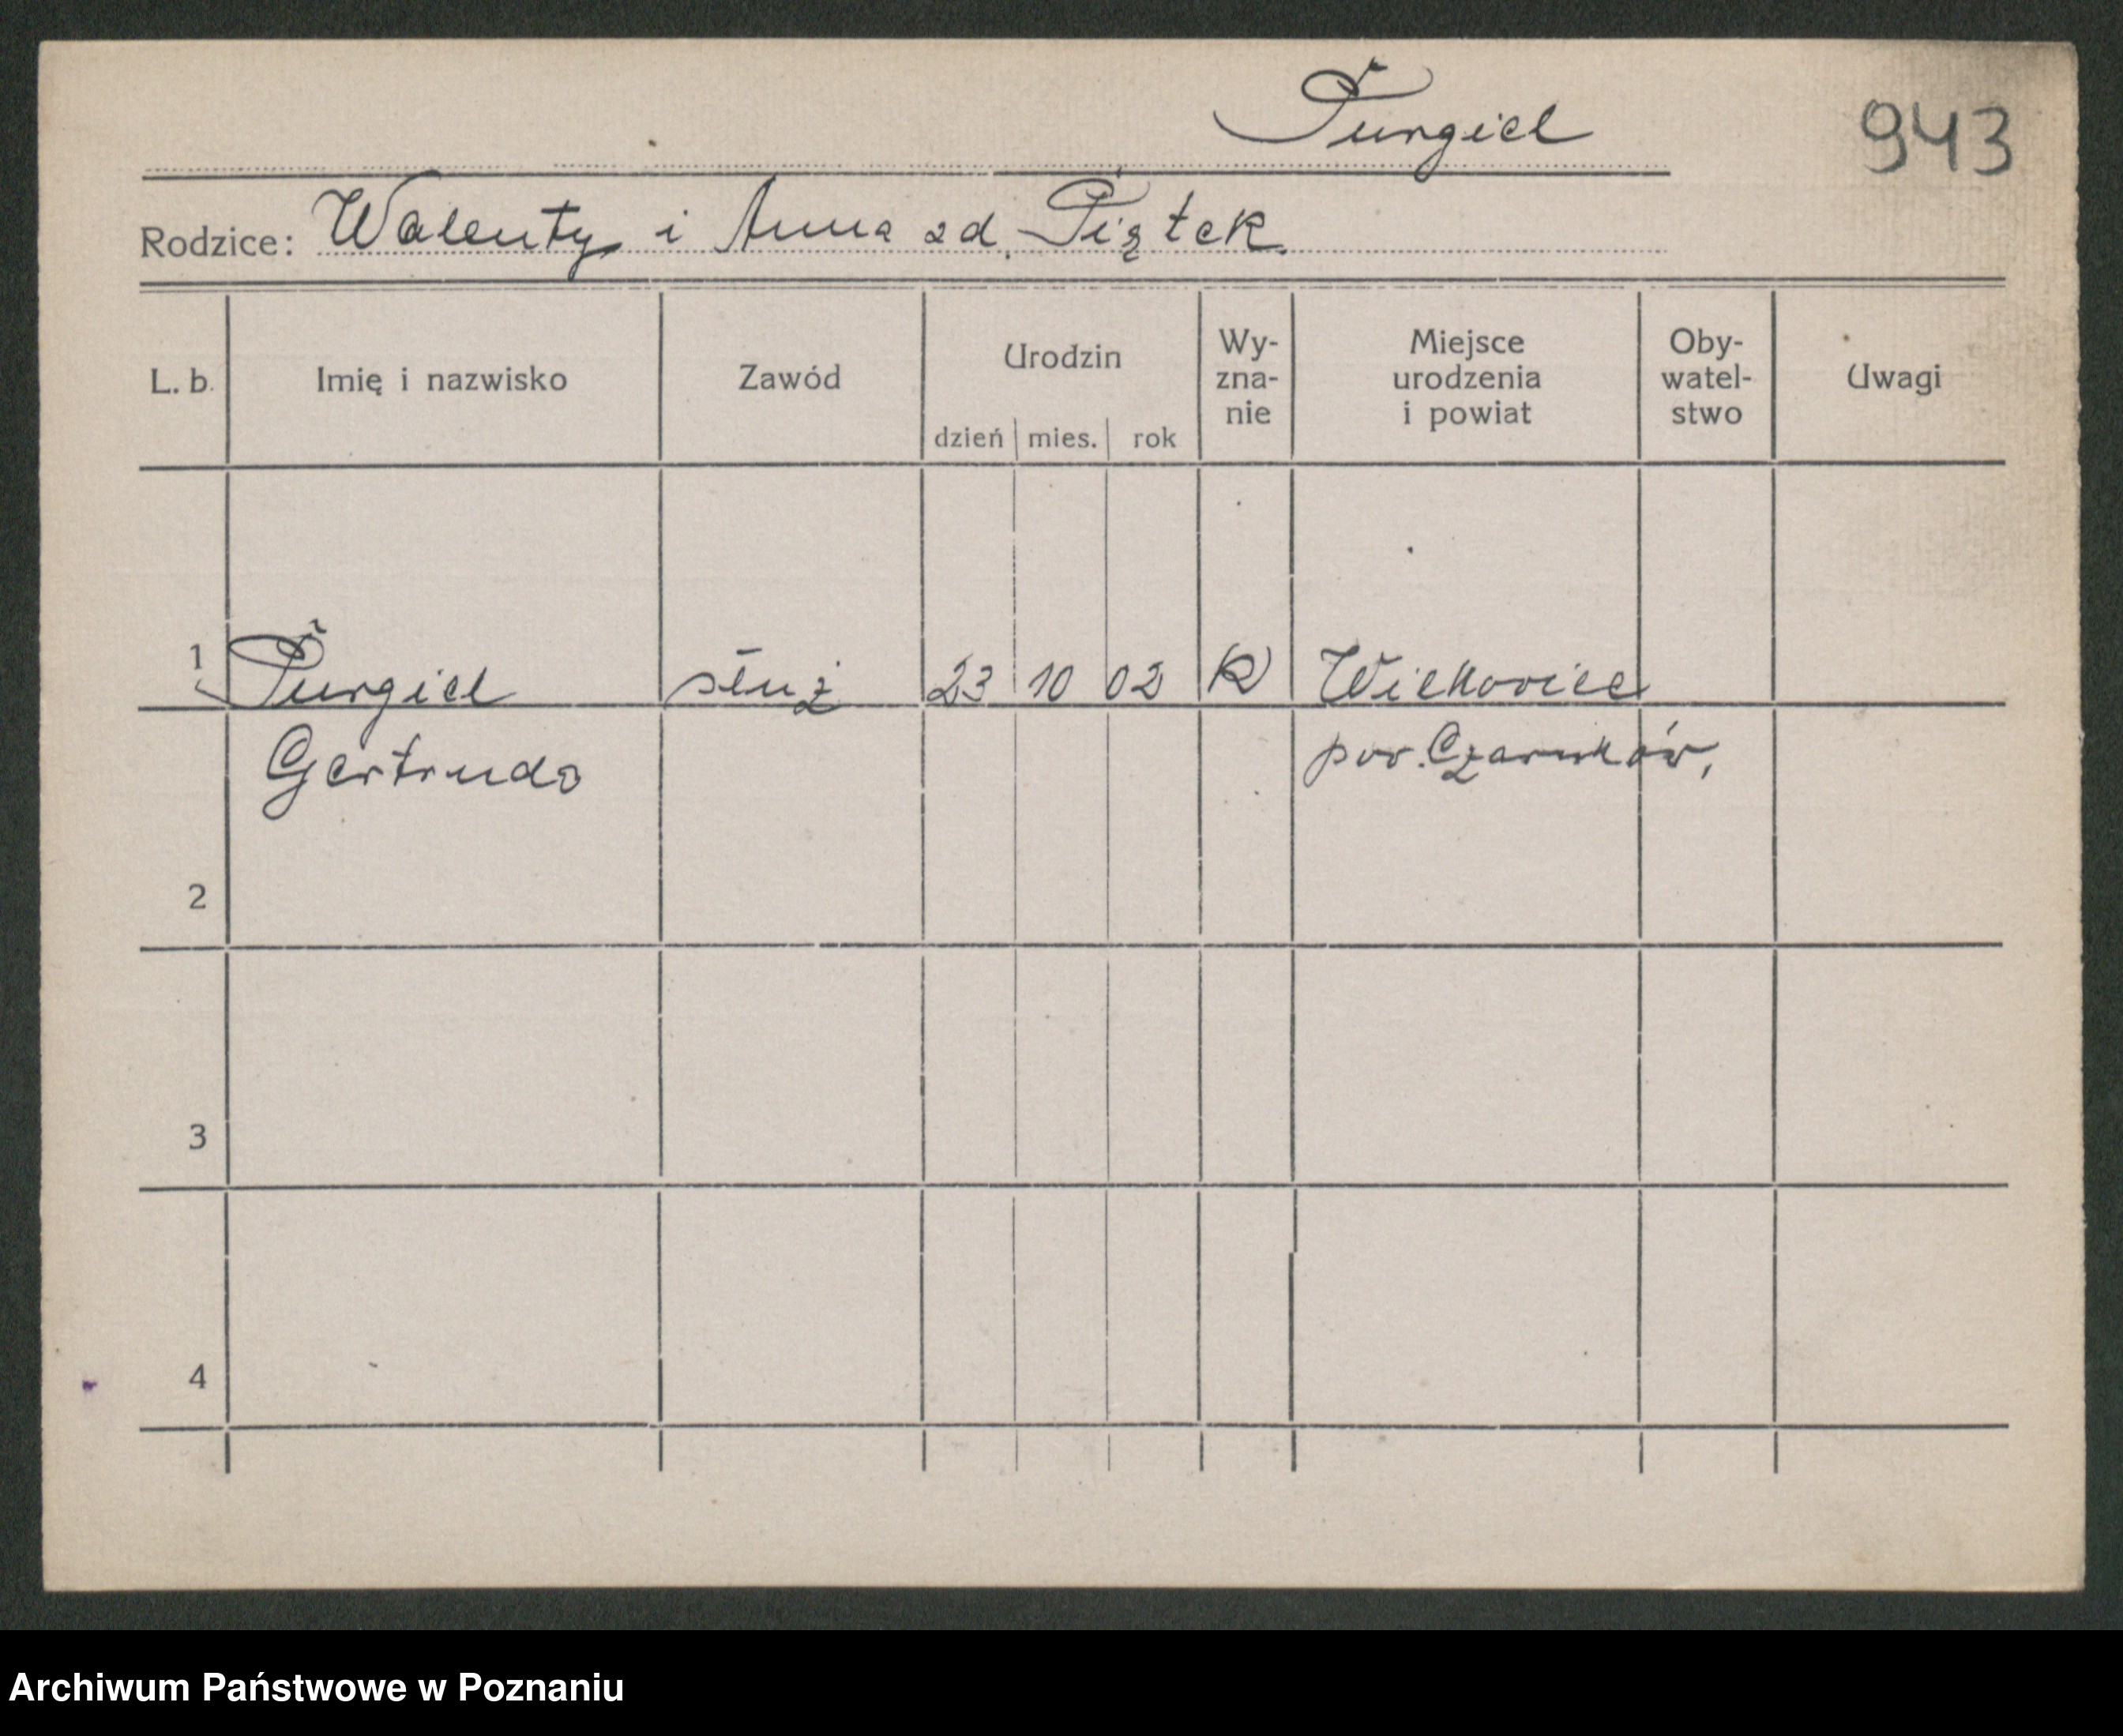 Purgiel
943
Rodzice: Walenty i Anna zd. Piątek.
L. b. Imię i nazwisko Zawód Urodzin dzień mies. rok Wy-zna-nie Miejsce urodzenia i powiat Oby-watel-stwo Uwagi
1 Purgiel służ 23 10 02 K
Gertruda pow. Czarnków,
2
3
4
Archiwum Państwowe w Poznaniu